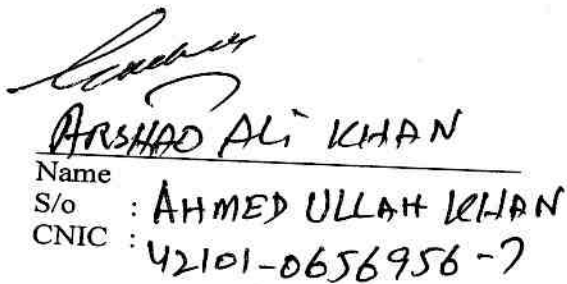 ARSHAD ALi KHAN
Name
S/o : AHMED ULLAH KHAN
CNIC : 42101-0656956-7